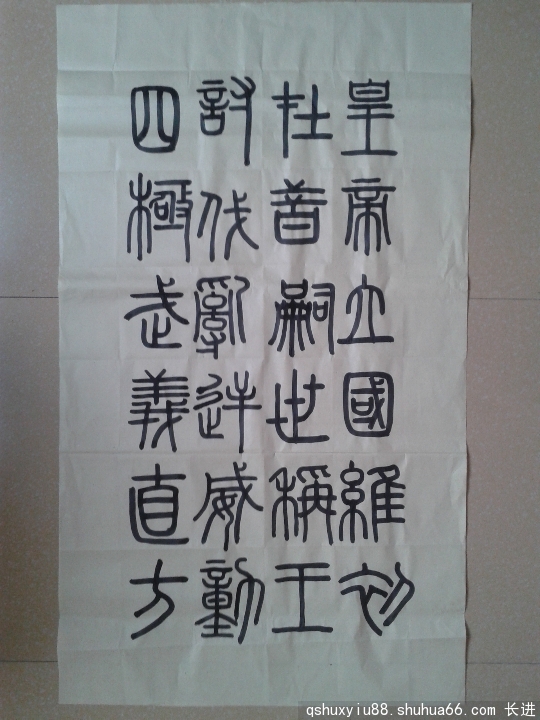 皇帝立國維初
在昔嗣世稱王
討伐亂逆威動
四極武義直方
qshuxyiu88.shuhua66.com 长进